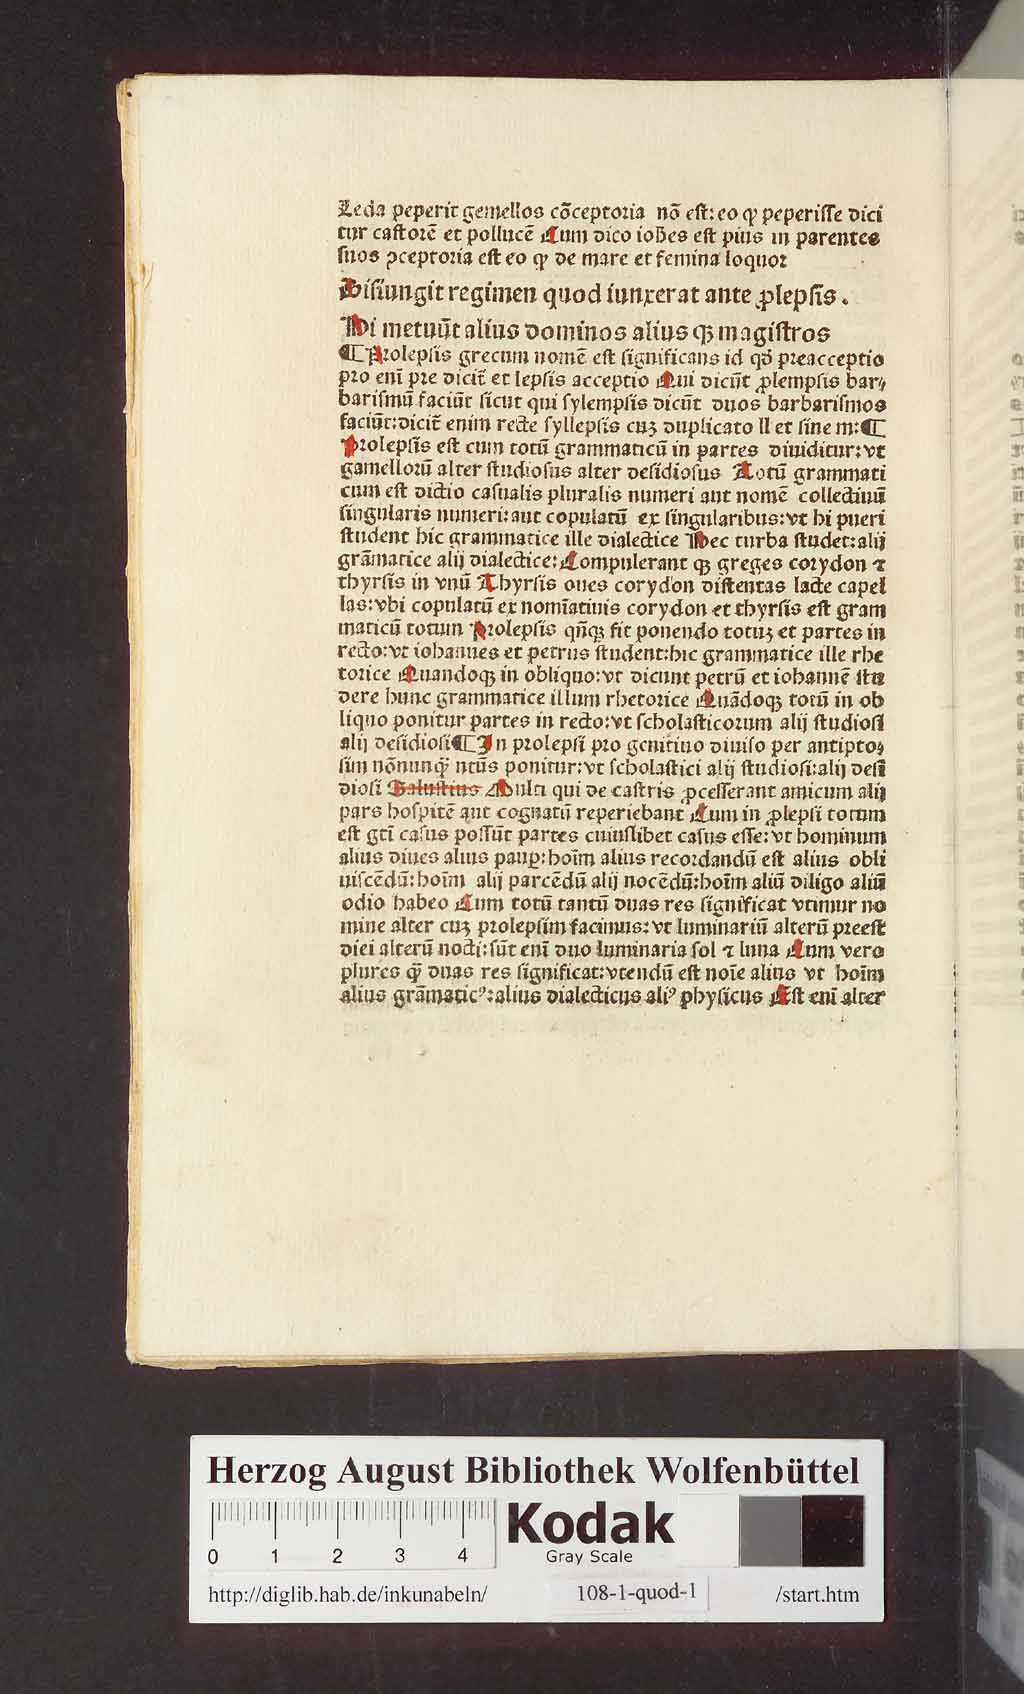 Leda peperit gemellos cōceptoria nō est: eo ꝙ peperisse dici
tur castorē et pollucē Cum dico ioh̄es est pius in parentes
suos ꝓceptoria est eo ꝙ de mare et femina loquor
Disiungit regimen quod iunxerat ante ꝓlepsis.
Hi metuūt alius dominos alius qꝫ magistros
¶ Prolepsis grecum nomē est significans id qđ preacceptio
pro enī pre dicit̄ et lepsis acceptio Qui dicūt ꝓlempsis bar⸗
barismū faciūt sicut qui sylempsis dicūt duos barbarismos
faciūt: dicit̄ enim recte syllepsis cuꝫ duplicato ll et sine m: ¶
Prolepsis est cum totū grammaticū in partes diuiditur: vt
gamellorū alter studiosus alter desidiosus Totū grammati
cum est dictio casualis pluralis numeri aut nomē collectiuū
singularis numeri: aut copulatū ex singularibus: vt hi pueri
student hic grammatice ille dialectice Hec turba studet: alij
grāmatice alij dialectice: Compulerant qꝫ greges corydon ⁊
thyrsis in vnū Thyrsis oues corydon distentas lacte capel
las: vbi copulatū ex nomīatiuis corydon et thyrsis est gram
maticū totum Prolepsis qn̄qꝫ fit ponendo totuꝫ et partes in
recto: vt iohannes et petrus student: hic grammatice ille rhe
torice Quandoqꝫ in obliquo: vt dicunt petrū et iohannē stu
dere hunc grammatice illum rhetorice Quādoqꝫ totū in ob
liquo ponitur partes in recto: vt scholasticorum alij studiosi
alij desidiosi ¶ In prolepsi pro genitiuo diuiso per antipto⸗
sim nōnunqꝫ̄ ntūs ponitur: vt scholastici alij studiosi: alij desi
diosi Salustius Multi qui de castris ꝓcesserant amicum alij
pars hospitē aut cognatū reperiebant Cum in ꝓlepsi totum
est gtī casus possūt partes cuiuslibet casus esse: vt hominum
alius diues alius pauꝑ: hoīm alius recordandū est alius obli
uiscēdū: hoīm alij parcēdū alij nocēdū: hoīm aliū diligo aliū
odio habeo Cum totū tantū duas res significat vtimur no
mine alter cuꝫ prolepsim facimus: vt luminariū alterū preest
diei alterū nocti: sūt enī duo luminaria sol ⁊ luna Cum vero
plures qꝫ̄ duas res significat: vtendū est noīe alius vt hoīm
alius grāmaticꝰ: alius dialecticus aliꝰ physicus Est enī alter
Herzog August Bibliothek Wolfenbüttel
0 1 2 3 4
Kodak
Gray Scale
http://diglib.hab.de/inkunabeln/ 108-1-quod-1 /start.htm